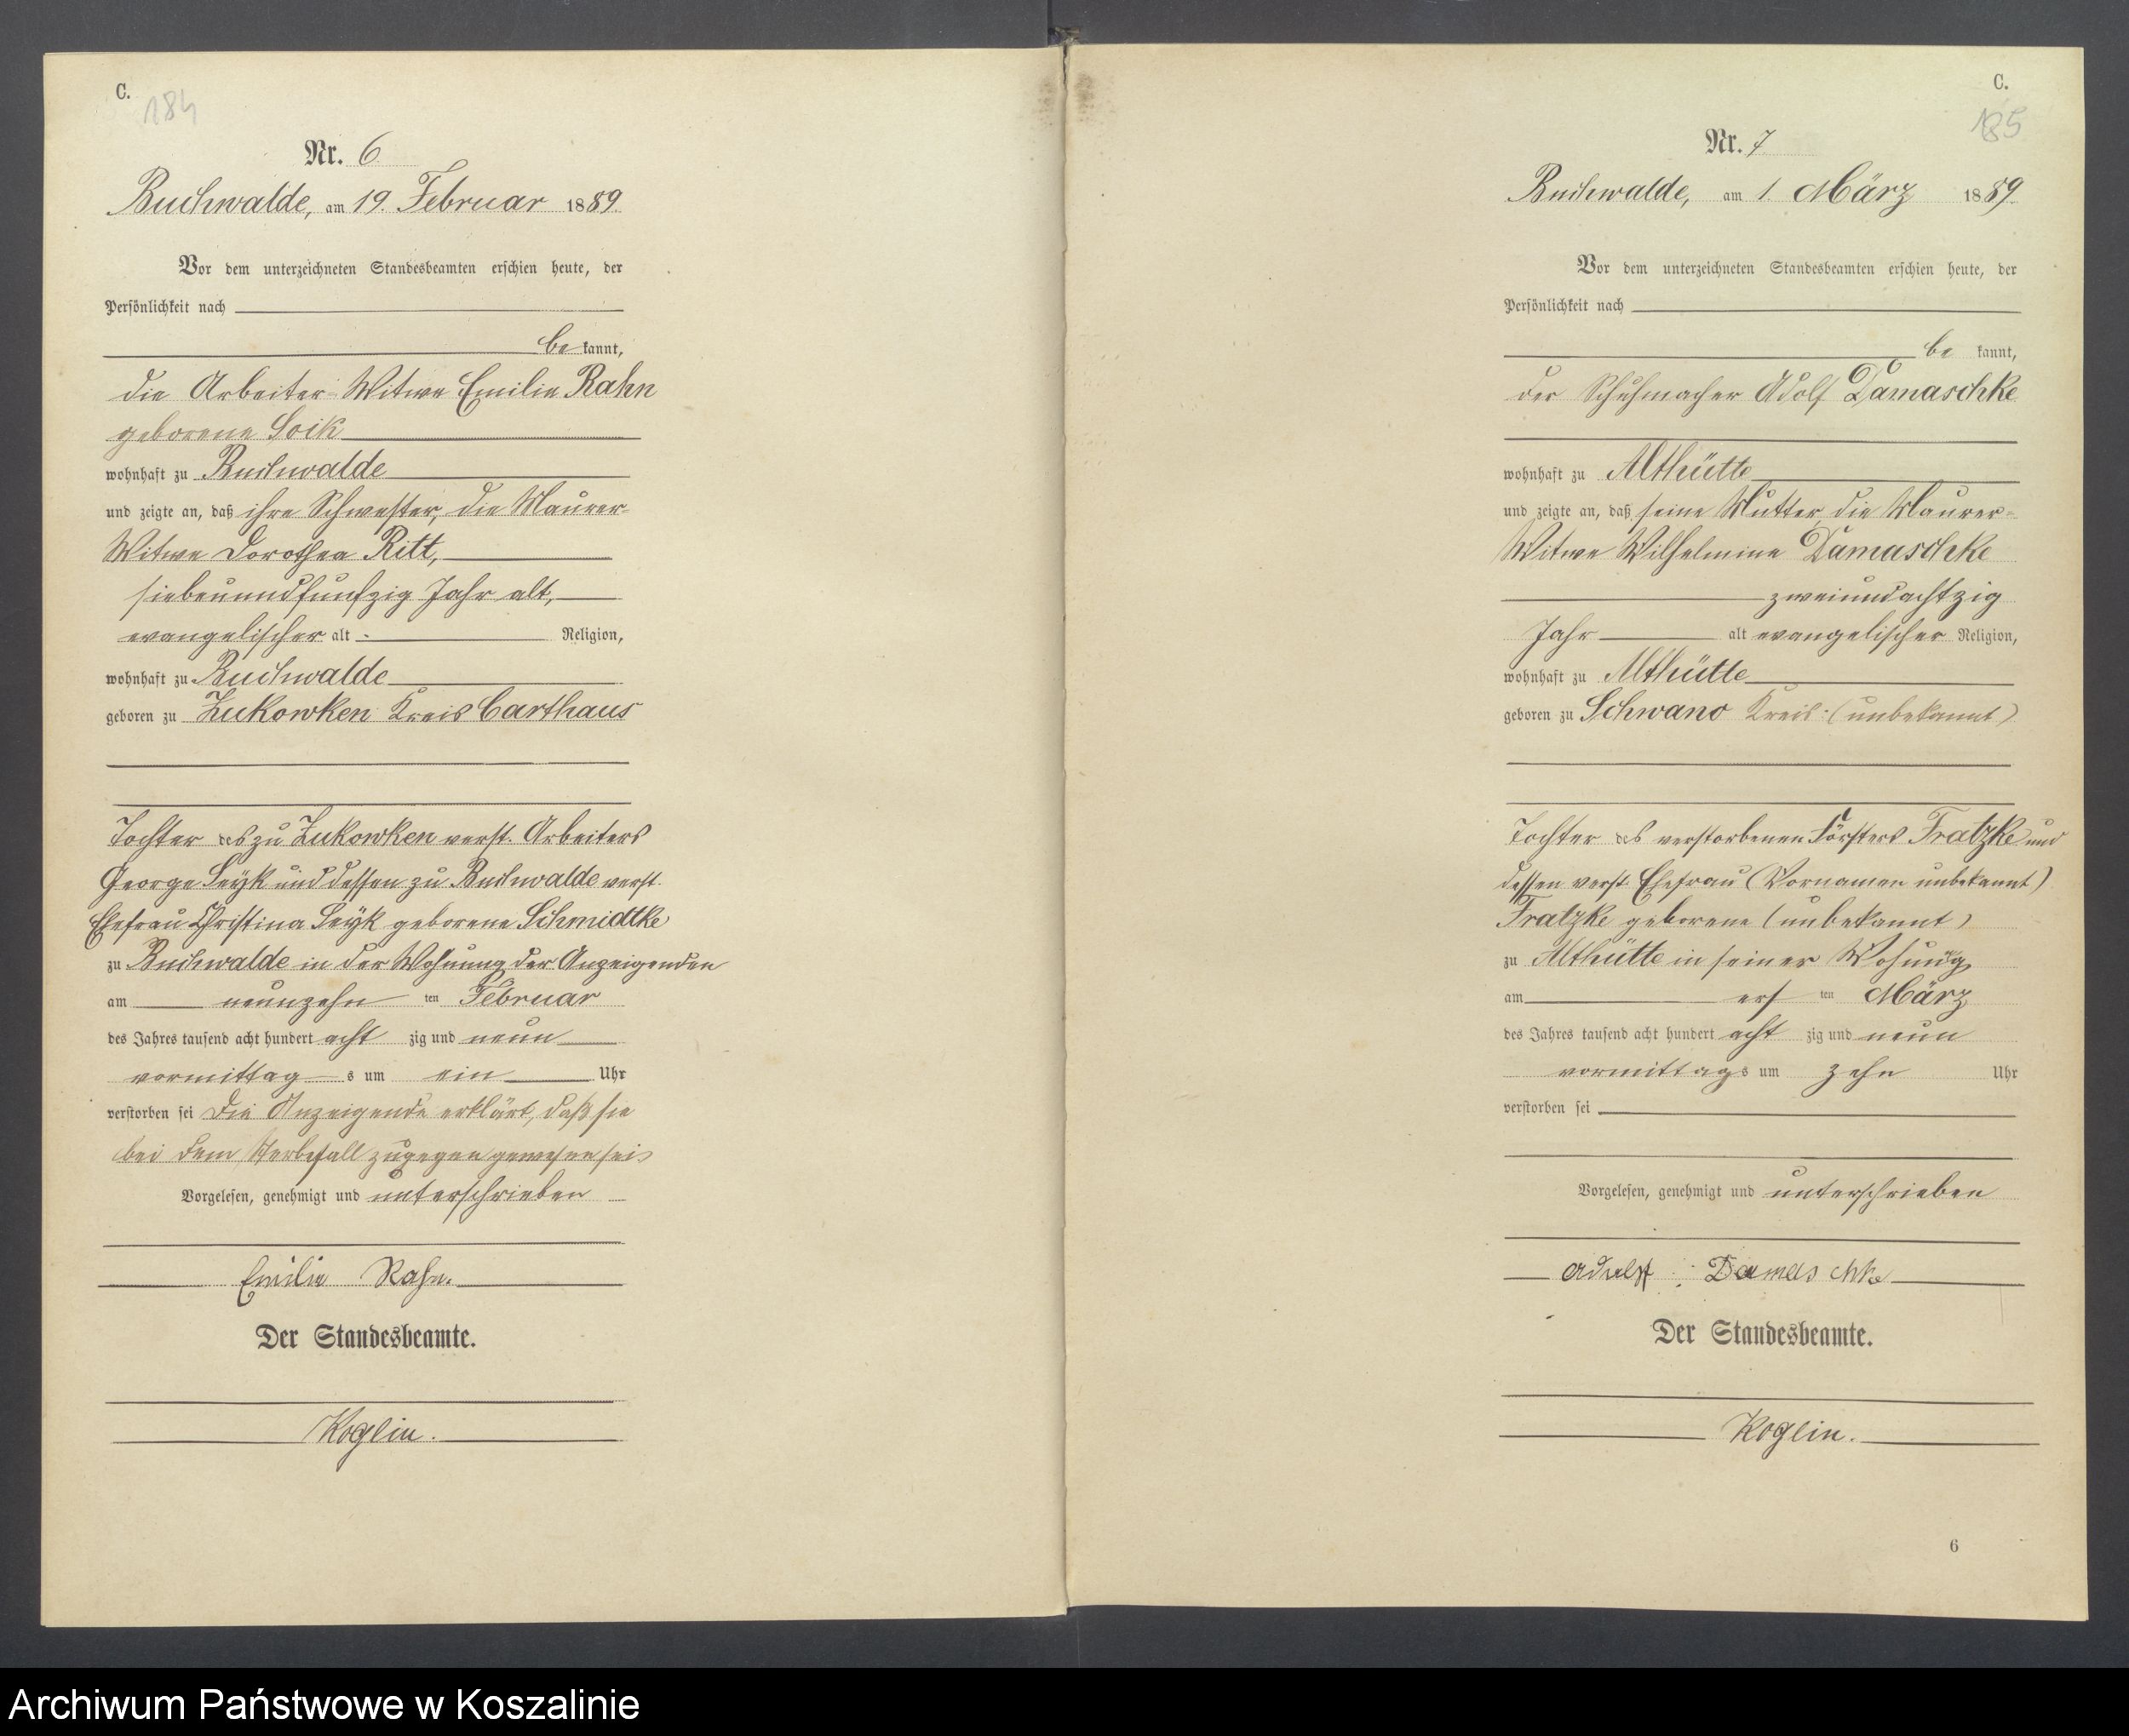 C.
184
Nr. 6
Buchwalde, am 19. Februar 1889.
Vor dem unterzeichneten Standesbeamten erschien heute, der
Persönlichkeit nach
be kannt,
die Arbeiter-Witwe Emilie Rahn
geborene Soik
wohnhaft zu Buchwalde
und zeigte an, daß ihre Schwester, die Maurer-
Witwe Dorothea Ritt,
siebenundfunfzig Jahr alt,
evangelischer alt Religion,
wohnhaft zu Buchwalde
geboren zu Zukowken Kreis Carthaus
Tochter des zu Zukowken verst. Arbeiters
George Seÿk und dessen zu Buchwalde verst.
Ehefrau Christina Seÿk geborene Schmidtke
zu Buchwalde in der Wohnung der Anzeigenden
am neunzehn ten Februar
des Jahres tausend acht hundert acht zig und neun
vormittag s um ein Uhr
verstorben sei Die Anzeigende erklärt, daß sie
bei dem Sterbefall zugegen gewesen sei
Vorgelesen, genehmigt und unterschrieben
Emilie Rahn.
Der Standesbeamte.
Koglin.
C.
185
Nr. 7
Buchwalde, am 1. März 1889.
Vor dem unterzeichneten Standesbeamten erschien heute, der
Persönlichkeit nach
be kannt,
der Schuhmacher Adolf Damaschke
wohnhaft zu Althütte
und zeigte an, daß seine Mutter, die Maurer-
Witwe Wilhelmine Damaschke
zweiundachtzig
Jahr alt evangelischer Religion,
wohnhaft zu Althütte
geboren zu Schwano Kreis: (unbekannt)
Tochter des verstorbenen Försters Fratzke und
dessen verst. Ehefrau (Vornamen unbekannt)
Fratzke geborene (unbekannt)
zu Althütte in seiner Wohung
am ers ten März
des Jahres tausend acht hundert acht zig und neun
vormittags um zehn Uhr
verstorben sei
Vorgelesen, genehmigt und unterschrieben
Adolf Damaschke
Der Standesbeamte.
Koglin.
6
Archiwum Państwowe w Koszalinie